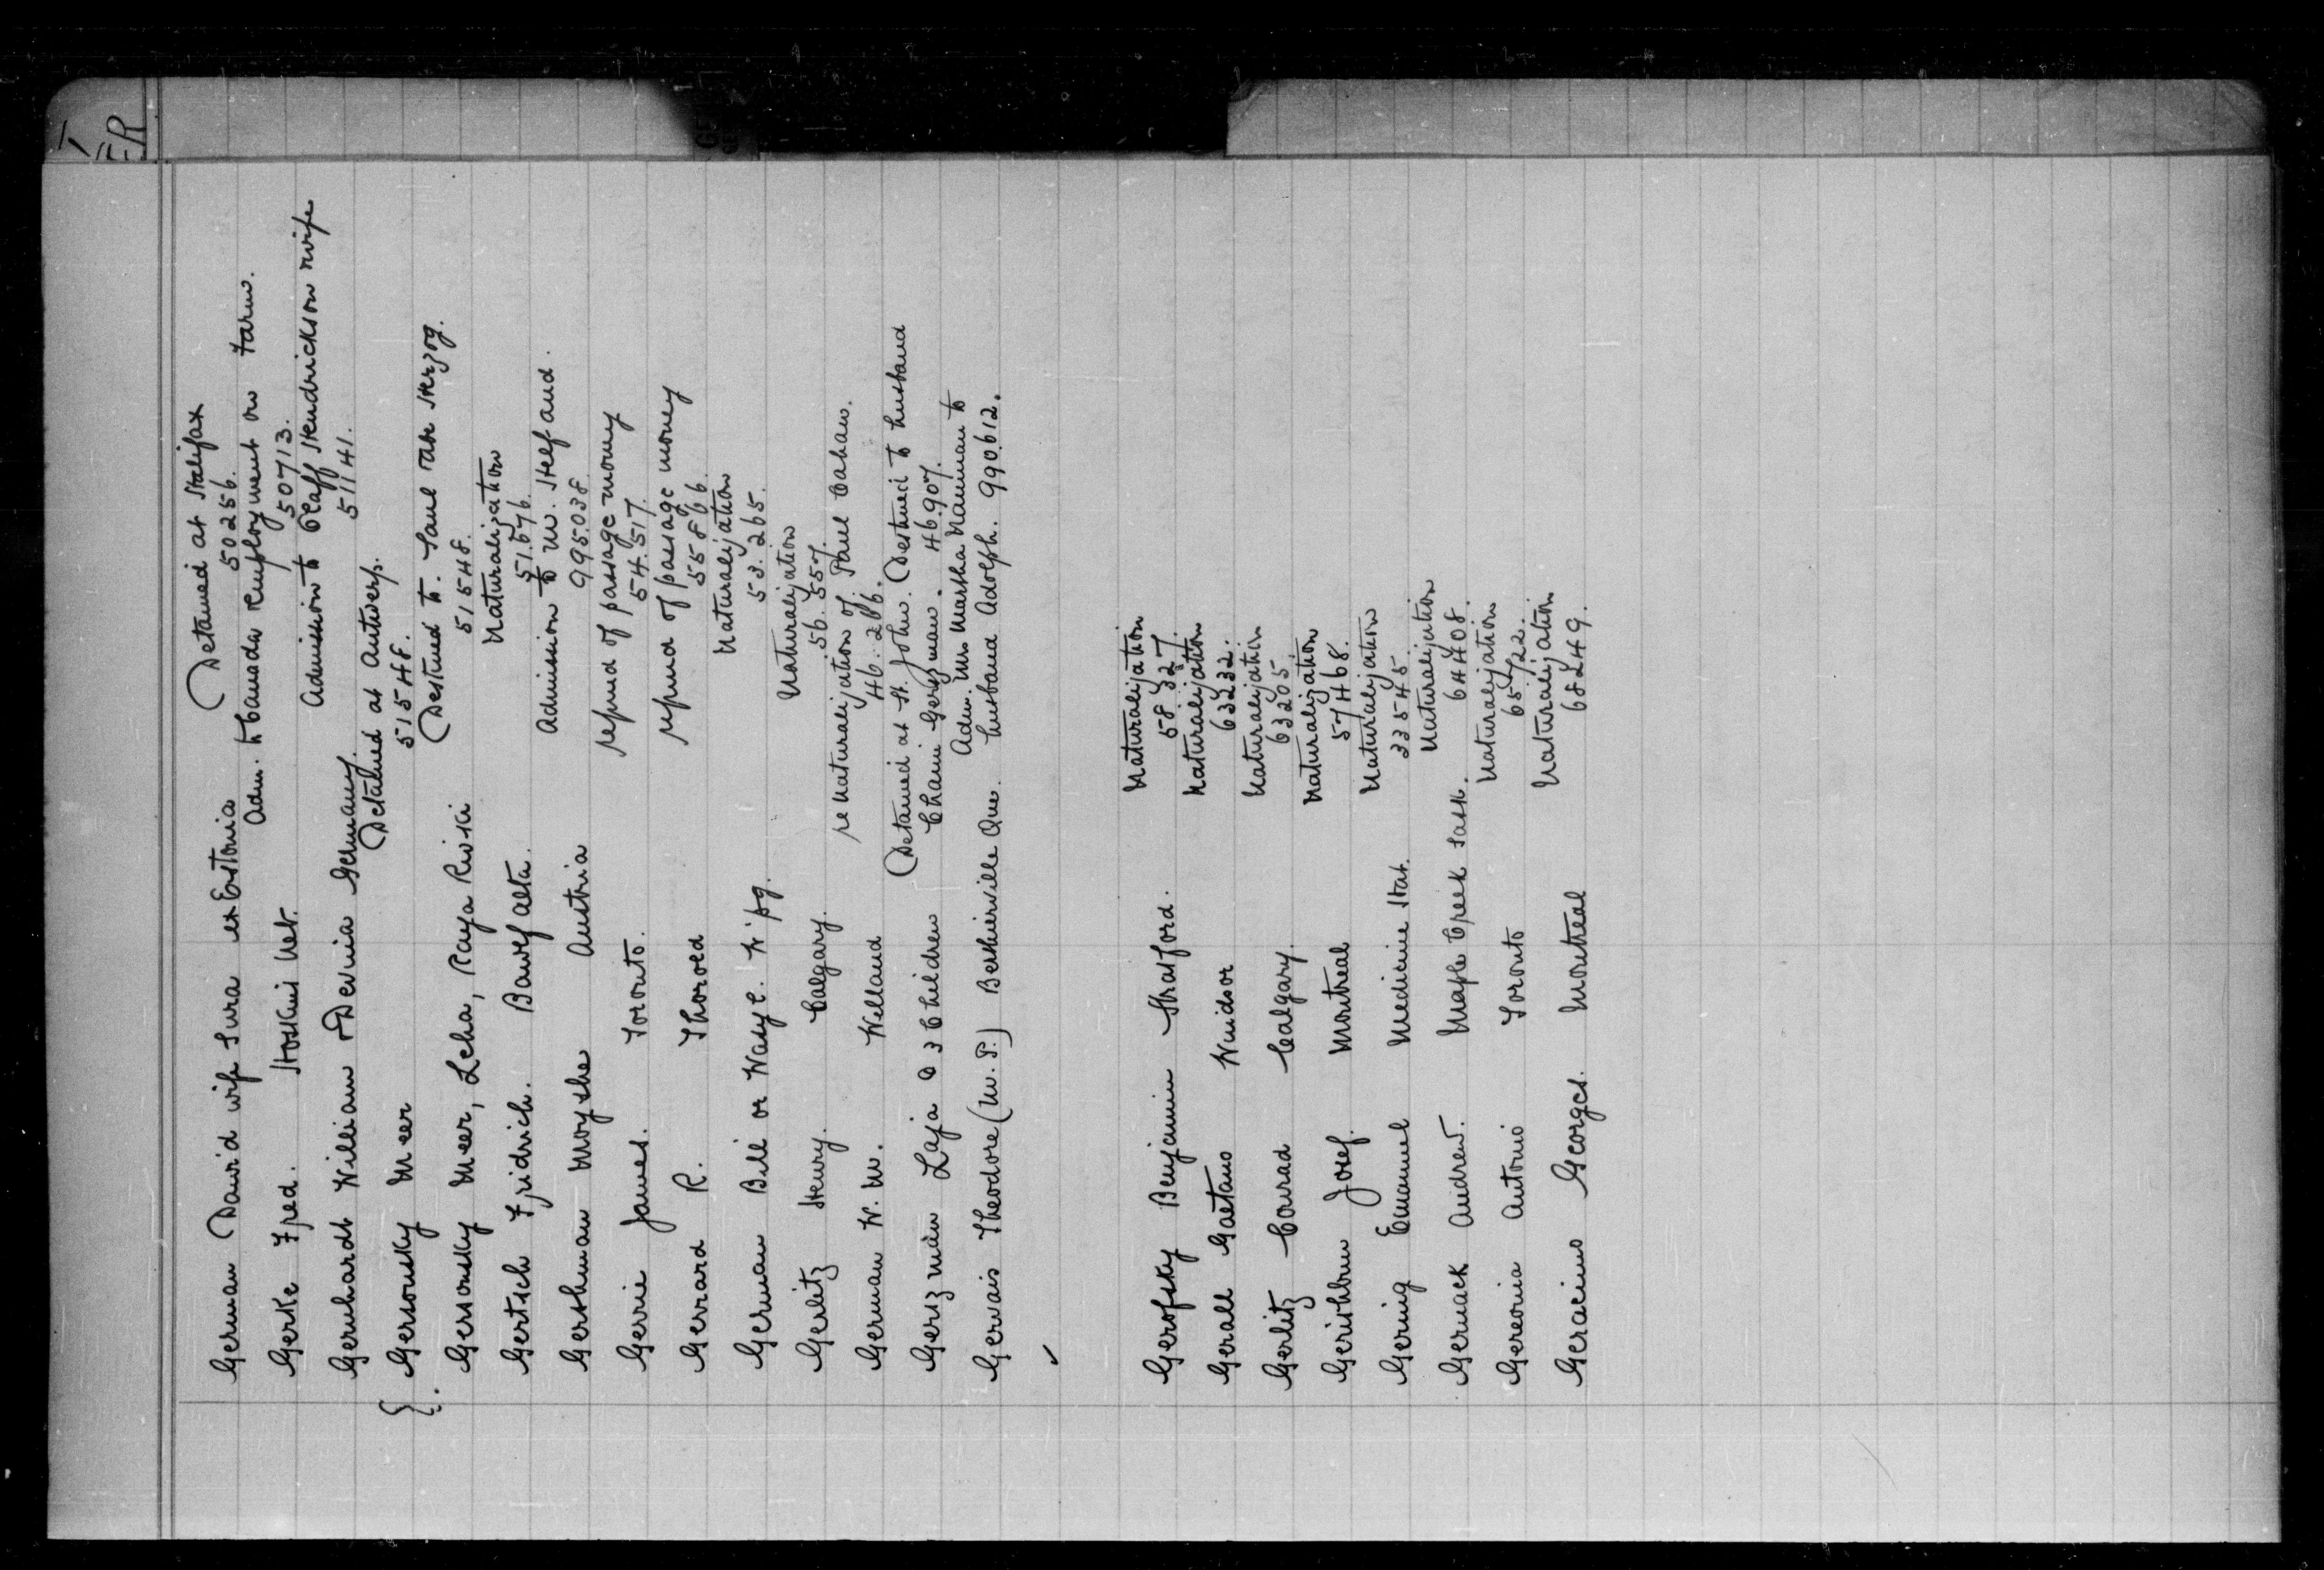 GER
German David wife Sura ex Estonia Detained at Halifax
50256.
Gerke Fred. Hoskins Util. Adm. to Canada Employment on Farm.
50713.
Gernhardt William & Devinia Germany. Admission to Olaff Hendrickson wife
51141.
Gersonsky Meer Detained at Antwerp.
51548.
Gersonsky Meer, Leha, Raya Riwski Destined to Saul Abe Herzog.
51548.
Gertsch Fridrich. Bawlf Alta. Naturalization
51.576.
Gershman Moyshe Austria Admission to M. Helfand.
995.038.
Gerrie James. Toronto. refund of passage money
54.517.
Gerrard R. Thorold refund of passage money
55866.
German Bill or Wasyl. W'pg. Naturalization
53.265.
Gerlitz Henry. Calgary. Naturalization
56.557.
German W. M. Welland re Naturalization of Paul Cahan.
46.286.
Gerszman Laja & 3 Children Detained at St. John. Destined to husband
Chaim Gerszman. 46907.
Adm. Mrs Martha Nauman to
Gervais Theodore (M. P.) Berthierville Que. husband Adolph. 990.612.
✓
Gerofsky Benjamin Stratford. Naturalization
58.327.
Gerall Gaetano Windsor Naturalization
63232.
Gerlitz Conrad Calgary. Naturalization
63205
Gerishbrun Josef. Montreal Naturalization
57468.
Gering Emanuel Medicine Hat. Naturalization
33545.
Germack Andrew. Maple Creek Sask. Naturalization
64408.
Gereonia Antonio Toronto Naturalization
65722.
Geracimo Georges. Montreal Naturalization
68249.